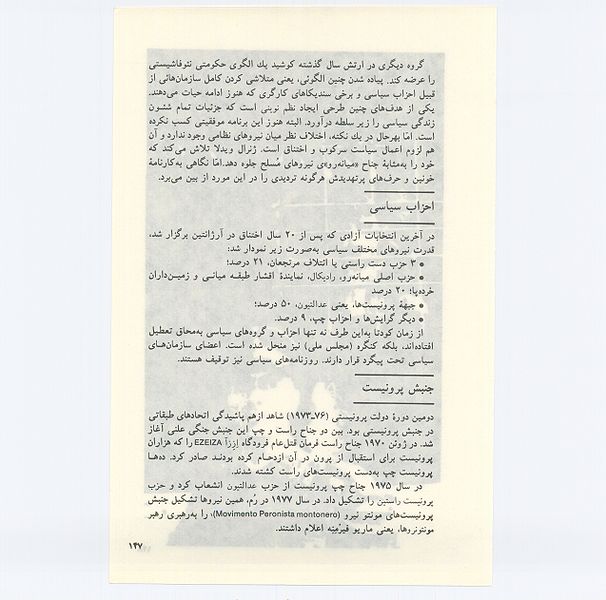 گروه دیگری در ارتش سال گذشته کوشید یك الگوی حکومتی نئوفاشیستی
را عرضه کند. پیاده شدن چنین الگوئی، یعنی متلاشی کردن کامل سازمان‌هائی از
قبیل احزاب سیاسی و برخی سندیکاهای کارگری که هنوز ادامه حیات می‌دهند.
یکی از هدف‌های چنین طرحی ایجاد نظم نوینی است که جزئیات تمام شئون
زندگی سیاسی را زیر سلطه درآورد. البته هنوز این برنامه موفقیتی کسب نکرده
است. امّا بهرحال در یك نکته، اختلاف نظر میان نیروهای نظامی وجود ندارد و آن
هم لزوم اعمال سیاست سرکوب و اختناق است. ژنرال ویدلا تلاش می‌کند که
خود را به‌مثابهٔ جناح «میانه‌رو»ی نیروهای مُسلح جلوه دهد.امّا نگاهی به‌کارنامهٔ
خونین و حرف‌های پرتهدیدش هرگونه تردیدی را در این مورد از بین می‌برد.
احزاب سیاسی
در آخرین انتخابات آزادی که پس از ۲۰ سال اختناق در آرژانتین برگزار شد،
قدرت نیروهای مختلف سیاسی به‌صورت زیر نمودار شد:
● ۳ حزب دست راستی یا ائتلاف مرتجعان، ۲۱ درصد؛
● حزب اصلی میانه‌رو، رادیکال، نمایندهٔ اقشار طبقه میانی و زمین‌داران
خرده‌پا؛ ۲۰ درصد
● جبههٔ پرونیست‌ها، یعنی عدالتیون، ۵۰ درصد؛
● دیگر گرایش‌ها و احزاب چپ، ۹ درصد.
از زمان کودتا به‌این طرف نه تنها احزاب و گروه‌های سیاسی به‌محاق تعطیل
افتاده‌اند، بلکه کنگره (مجلس ملی) نیز منحل شده است. اعضای سازمان‌های
سیاسی تحت پیگرد قرار دارند. روزنامه‌های سیاسی نیز توقیف هستند.
جنبش پرونیست
دومین دورهٔ دولت پرونیستی (۷۶ـ۱۹۷۳) شاهد ازهم پاشیدگی اتحادهای طبقاتی
در جنبش پرونیستی بود. بین دو جناح راست و چپ این جنبش جنگی علنی آغاز
شد. در ژوئن ۱۹۷۰ جناح راست فرمان قتل‌عام فرودگاه اِزِزآ EZEIZA را که هزاران
پرونیست برای استقبال از پرون در آن ازدحام کرده بودند صادر کرد. ده‌ها
پرونیست چپ به‌دست پرونیست‌های راست کشته شدند.
در سال ۱۹۷۵ جناح چپ پرونیست از حزب عدالتیون انشعاب کرد و حزب
پرونیست راستین را تشکیل داد. در سال ۱۹۷۷ در رُم، همین نیروها تشکیل جنبش
پرونیست‌های مونتو نیرو (Movimento Peronista montonero)، را به‌رهبری رهبر
مونتونروها، یعنی ماریو فیرمِنِه اعلام داشتند.
۱۴۷